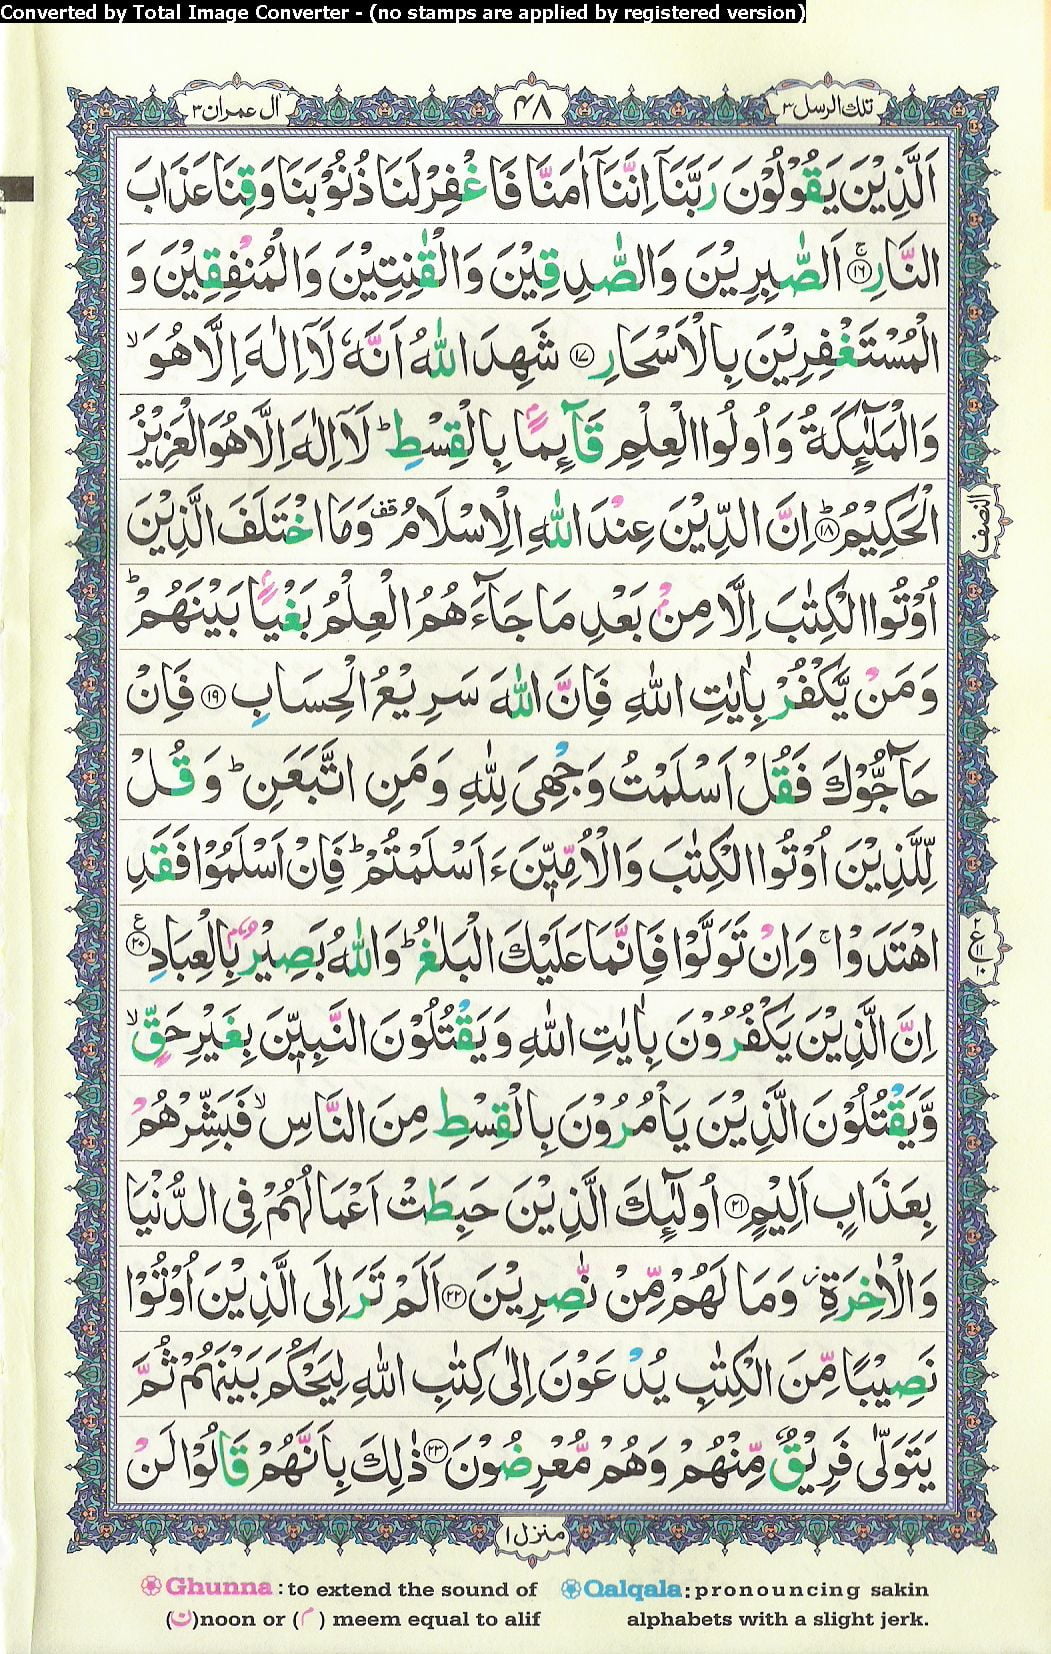 Converted by Total Image Converter - (no stamps are applied by registered version)
تلك الرسل ٣
٤٨
اٰل عمران ٣
اَلَّذِيْنَ يَقُوْلُوْنَ رَبَّنَاۤ اِنَّنَاۤ اٰمَنَّا فَاغْفِرْ لَنَا ذُنُوْبَنَا وَقِنَا عَذَابَ
النَّارِ ۚ﴿۱۶﴾ اَلصّٰبِرِيْنَ وَالصّٰدِقِيْنَ وَالْقٰنِتِيْنَ وَالْمُنْفِقِيْنَ وَ
الْمُسْتَغْفِرِيْنَ بِالْاَسْحَارِ ﴿۱۷﴾ شَهِدَ اللّٰهُ اَنَّهٗ لَاۤ اِلٰهَ اِلَّا هُوَ ۙ
وَالْمَلٰٓئِكَةُ وَاُولُوا الْعِلْمِ قَآئِمًۢا بِالْقِسْطِ ؕ لَاۤ اِلٰهَ اِلَّا هُوَ الْعَزِيْزُ
الْحَكِيْمُ ؕ﴿۱۸﴾ اِنَّ الدِّيْنَ عِنْدَ اللّٰهِ الْاِسْلَامُ قف وَمَا اخْتَلَفَ الَّذِيْنَ
اُوْتُوا الْكِتٰبَ اِلَّا مِنْۢ بَعْدِ مَا جَآءَهُمُ الْعِلْمُ بَغْيًۢا بَيْنَهُمْ ؕ
وَمَنْ يَّكْفُرْ بِاٰيٰتِ اللّٰهِ فَاِنَّ اللّٰهَ سَرِيْعُ الْحِسَابِ ﴿۱۹﴾ فَاِنْ
حَآجُّوْكَ فَقُلْ اَسْلَمْتُ وَجْهِيَ لِلّٰهِ وَمَنِ اتَّبَعَنِ ؕ وَقُلْ
لِّلَّذِيْنَ اُوْتُوا الْكِتٰبَ وَالْاُمِّيّٖنَ ءَاَسْلَمْتُمْ ؕ فَاِنْ اَسْلَمُوْا فَقَدِ
اهْتَدَوْا ۚ وَاِنْ تَوَلَّوْا فَاِنَّمَا عَلَيْكَ الْبَلٰغُ ؕ وَاللّٰهُ بَصِيْرٌۢ بِالْعِبَادِ ﴿۲۰﴾ ع
اِنَّ الَّذِيْنَ يَكْفُرُوْنَ بِاٰيٰتِ اللّٰهِ وَيَقْتُلُوْنَ النَّبِيّٖنَ بِغَيْرِ حَقٍّ ۙ
وَّيَقْتُلُوْنَ الَّذِيْنَ يَاْمُرُوْنَ بِالْقِسْطِ مِنَ النَّاسِ ۙ فَبَشِّرْهُمْ
بِعَذَابٍ اَلِيْمٍ ﴿۲۱﴾ اُولٰٓئِكَ الَّذِيْنَ حَبِطَتْ اَعْمَالُهُمْ فِي الدُّنْيَا
وَالْاٰخِرَةِ ز وَمَا لَهُمْ مِّنْ نّٰصِرِيْنَ ﴿۲۲﴾ اَلَمْ تَرَ اِلَى الَّذِيْنَ اُوْتُوْا
نَصِيْبًا مِّنَ الْكِتٰبِ يُدْعَوْنَ اِلٰى كِتٰبِ اللّٰهِ لِيَحْكُمَ بَيْنَهُمْ ثُمَّ
يَتَوَلّٰى فَرِيْقٌ مِّنْهُمْ وَهُمْ مُّعْرِضُوْنَ ﴿۲۳﴾ ذٰلِكَ بِاَنَّهُمْ قَالُوْا لَنْ
النصف
٢ ع ١١ ١٠
منزل ١
Ghunna : to extend the sound of (ن)noon or (م) meem equal to alif
Qalqala : pronouncing sakin alphabets with a slight jerk.